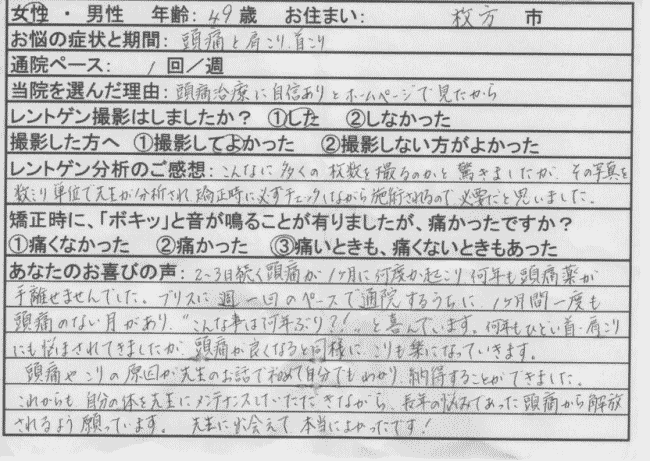 女性 ・ 男性 年齢: 49歳 お住まい: 枚方 市
お悩の症状と期間: 頭痛と肩こり、首こり
通院ペース: 1 回/週
当院を選んだ理由: 頭痛治療に自信ありとホームページで見たから
レントゲン撮影はしましたか? ①した ②しなかった
撮影した方へ ①撮影してよかった ②撮影しない方がよかった
レントゲン分析のご感想: こんなに多くの枚数を撮るのかと驚きましたが、その写真を
数ミリ単位で先生が分析され、矯正時に必ずチェックしながら施術されるので、必要だと思いました。
矯正時に、「ボキッ」と音が鳴ることが有りましたが、痛かったですか?
①痛くなかった ②痛かった ③痛いときも、痛くないときもあった
あなたのお喜びの声: 2~3日続く頭痛が1ヶ月に何度か起こり、何年も頭痛薬が
手離せませんでした。ブリスに週一回のペースで通院するうちに、1ヶ月間一度も
頭痛のない月があり、"こんな事は何年ぶり?!"と喜んでいます。何年もひどい首・肩こり
にも悩まされてきましたが、頭痛が良くなると同様に、こりも楽になっていきます。
頭痛やこりの原因が先生のお話で初めて自分でもわかり、納得することができました。
これからも自分の体を先生にメンテナンスしていただきながら、長年の悩みであった頭痛から解放
されるよう願っています。先生に出会えて本当によかったです!